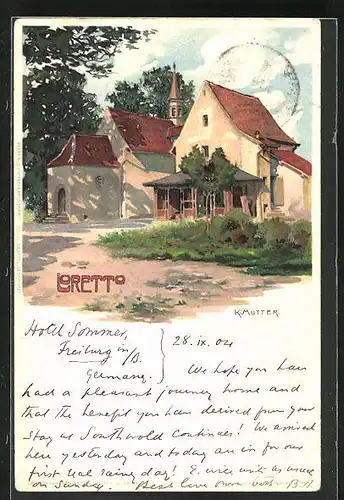 LORETTO
K. MUTTER.
Hotel Sommer,
Freiburg in/B.
Germany.
28. ix. 04
We hope you have
had a pleasant journey home and
that the benefit you have derived from your
stay at Southwold continues! We arrived
here yesterday and today are in for our
first real rainy day! E. will write as usual
on Sunday. Best love from both B H